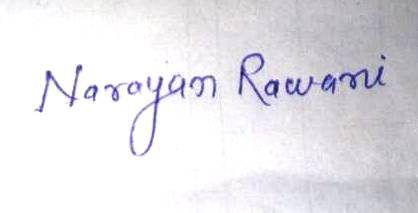 Narayan Rawani